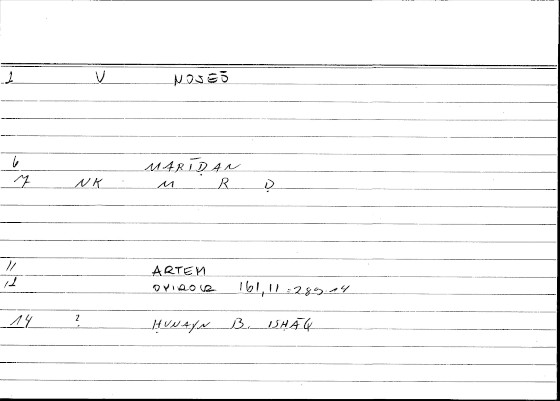 1 V NOSEŌ
6 MARĪḌAN
7 NK M R Ḍ
11 ARTEM
12 ONIROCR 161,11 = 285,14
14 ? ḤUNAYN B. ISḤĀQ